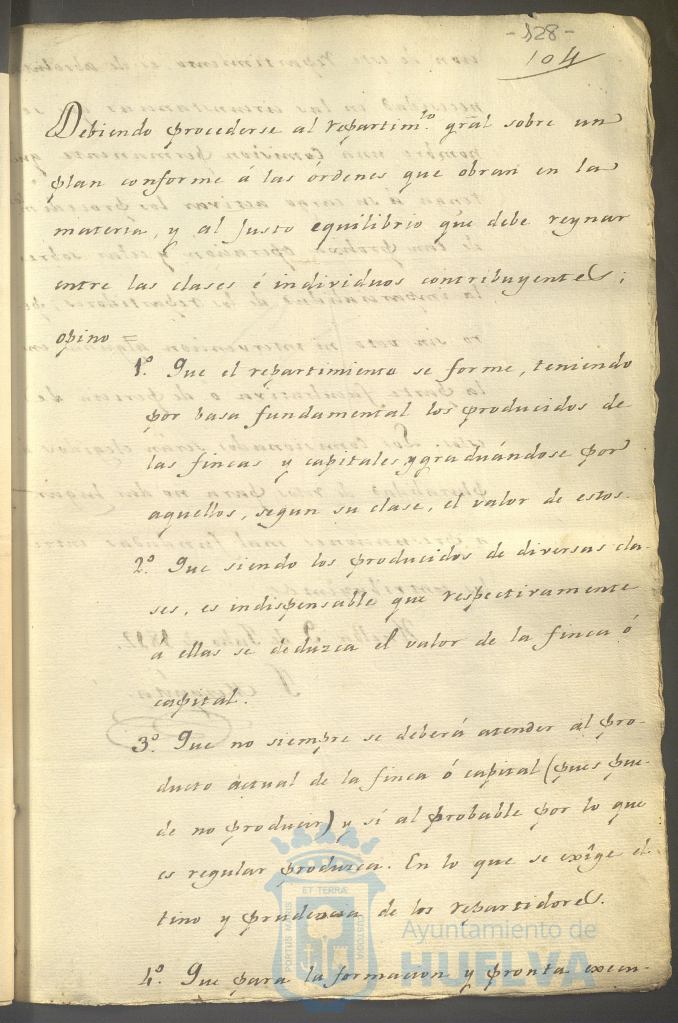 -128-
104
Debiendo procederse al repartim.to gral sobre un
plan conforme á las órdenes que obran en la
materia, y al justo equilibrio que debe reynar
entre las clases é individuos contribuyentes;
opino =
1.º Que el repartimiento se forme, teniendo
por basa fundamental los producidos de
las fincas y capitales, y graduándose por
aquellos, segun su clase, el valor de estos.
2.º Que siendo los producidos de diversas cla-
ses, es indispensable que respectivamente
a ellas se deduzca el valor de la finca ó
capital.
3.º Que no siempre se deberá atender al pro-
ducto actual de la finca ó capital (pues pue-
de no producir) y sí al probable por lo que
es regular produzca. En lo que se exîge el
tino y prudencia de los repartidores.
4.º Que para la formacion y pronta execu-
PORTUS MARIS
ET TERRÆ
CUSTODIA
Ayuntamiento de
HUELVA